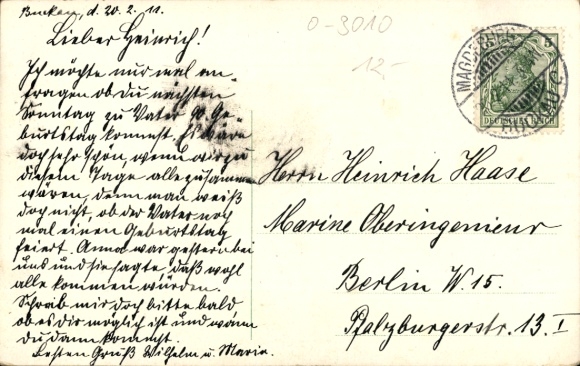 Buckau, d. 20.2.11.
Lieber Heinrich!
Ich möchte nur mal an-
fragen ob du nächsten
Sonntag zu Vater 90 Ge-
burtstag kommst, es wäre
doch sehr schön, wenn wir zu
diesem Tage alle zusamm
wären, denn man weiß
doch nicht, ob der Vater noch
mal einen Geburtstag
feiert. Anna war gestern bei
uns und sie sagte, daß wohl
alle kommen würden.
Schreib mir doch bitte bald
ob es dir möglich ist und wann
du dann kommst.
Besten Gruß Wilhelm u. Marie.
0-3010
12,-
MAGDEBURG
5
DEUTSCHES REICH
Herrn Heinrich Haase
Marine Oberingenieur
Berlin W. 15.
Pfalzburgerstr. 13. I